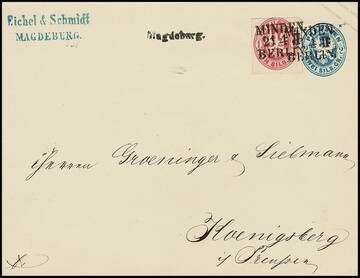 Eichel & Schmidt
MAGDEBURG.
Magdeburg.
MINDEN
21 4 II
BERLIN
MINDEN
4 II
BERLIN
ZWEI SILB. GR.
Herren Groeninger & Lielmann
Koenigsberg
i/ Preussen